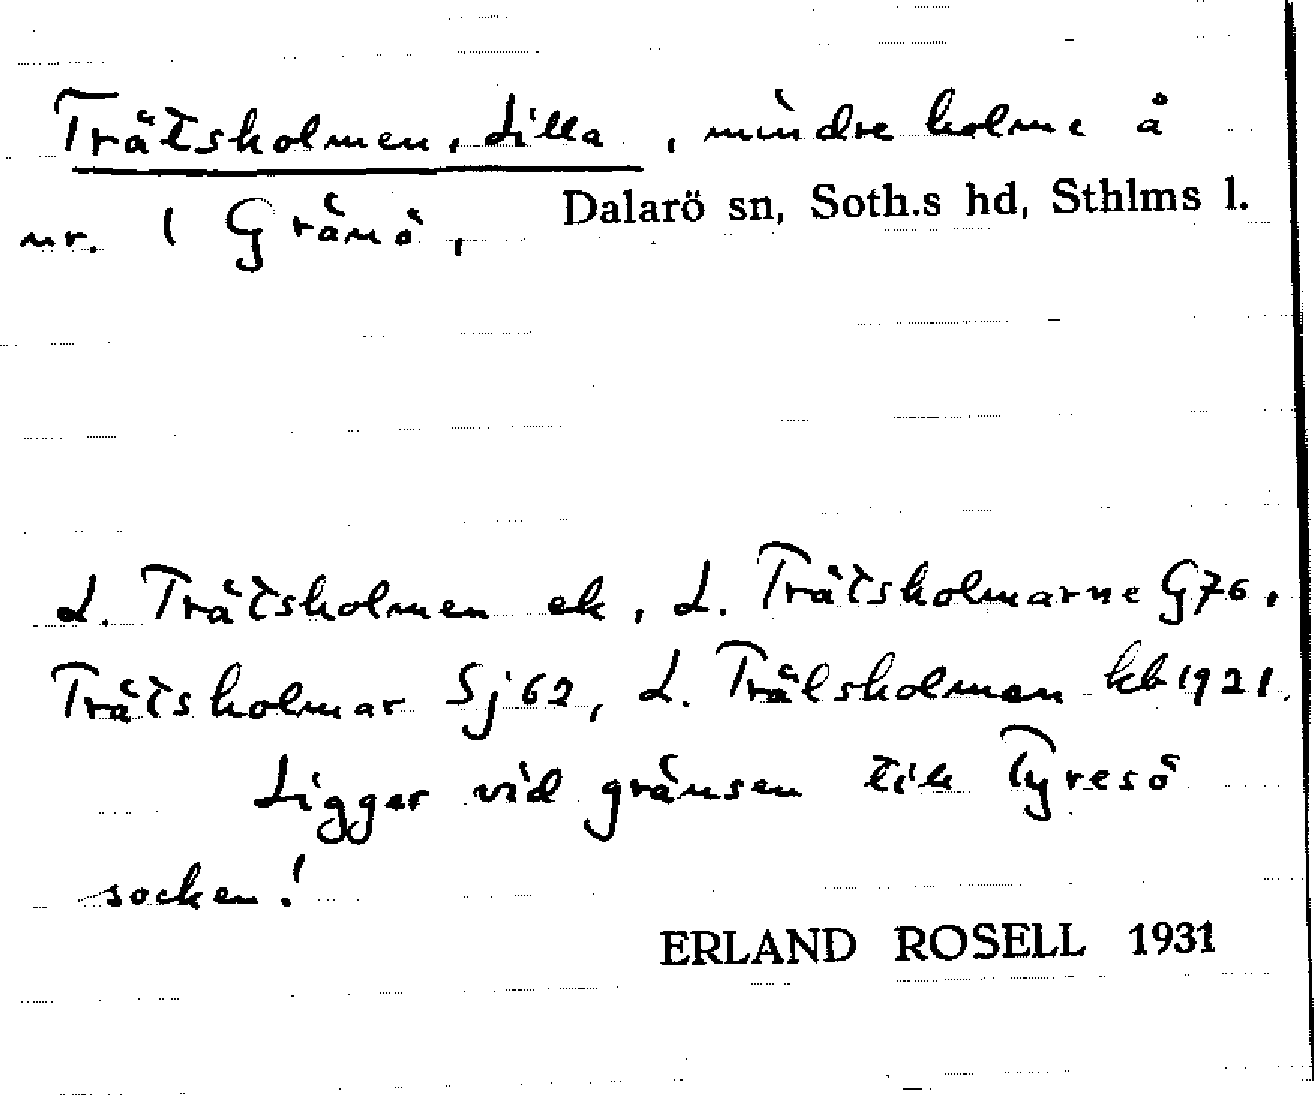 Trätsholmen, Lilla, mindre holme å
nr. 1 Gränö, Dalarö sn, Soth.s hd, Sthlms l.
L. Trätsholmen ek, L. Trätsholmarne G76,
Trätsholmar Sj 62, L. Trälsholmen kb 1921.
Ligger vid gränsen till Tyresö
socken!
ERLAND ROSELL 1931